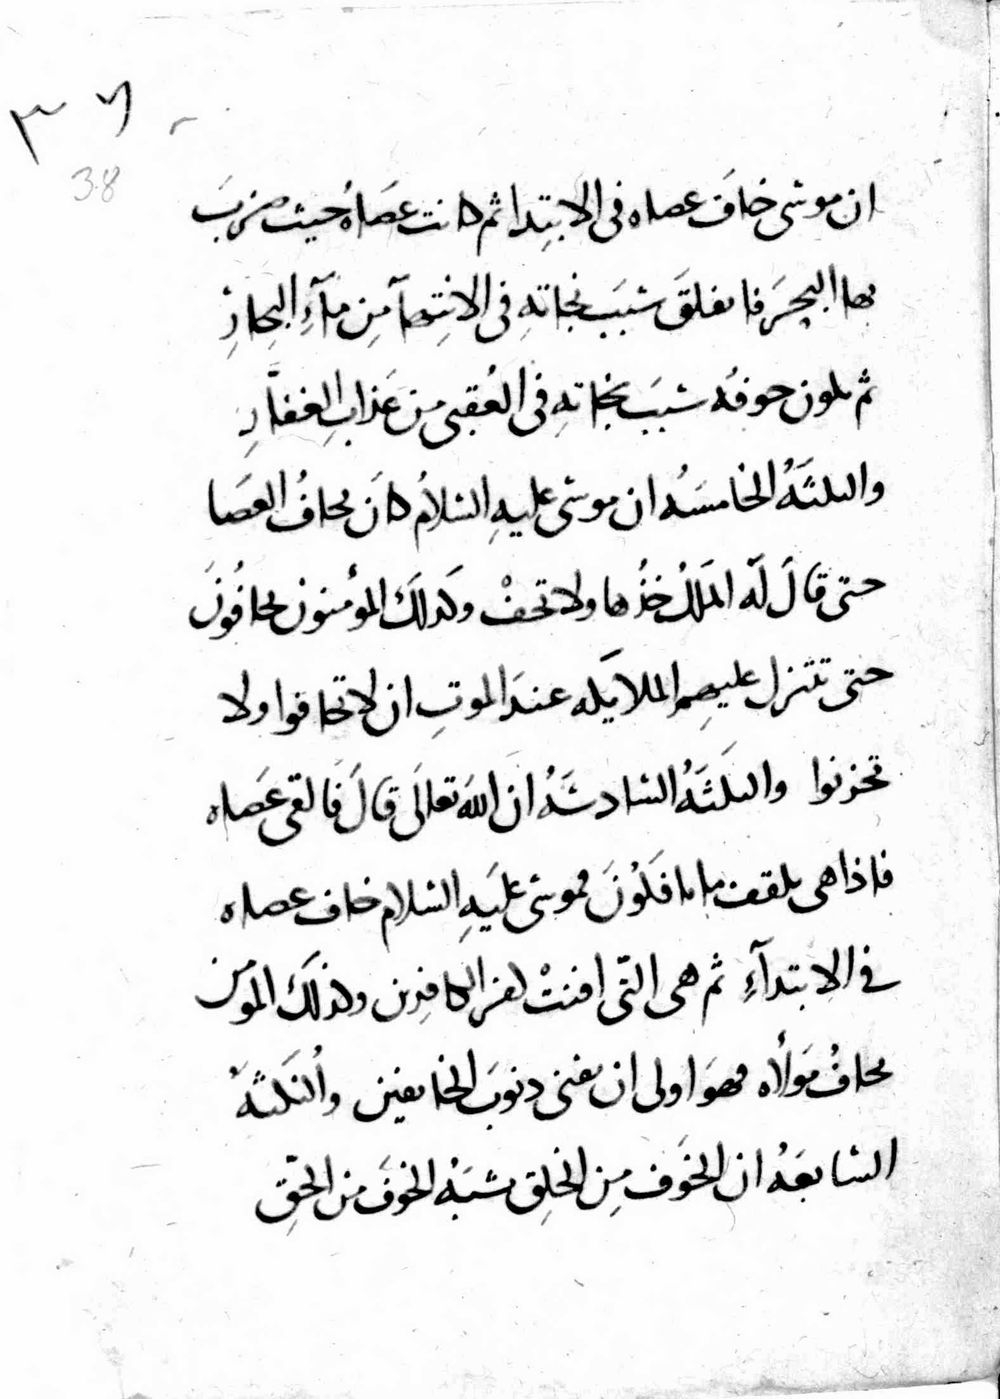 ٣٦
38
ان موسى خافَ عصاه فى الابتِدا ثم كانت عصَاهُ حيث ضربَ
بها البحَر فانفلقَ سَبَبَ نجاتهِ فى الانتِهآ مِن مآءِ البِحارِ
ثم يكون خوفُه سَبَبَ نجاتهِ فى العُقبى من عَذابِ الغفّارِ
والنكتَةُ الخامسَهُ ان موسى عليهِ السّلامُ كانَ يخافُ العصَا
حتى قالَ لَه المَلكُ خذُها ولا تخفْ وكذلكَ المؤمنون يخافُونَ
حتى تتنزل عليهِم الملايكه عندَ الموتِ ان لا تخافوا ولا
تحزنوا والنكتَةُ السّادسَةُ ان اللهَ تعالَى قالَ فَالقى عَصاه
فاذا هى تلقف ما يافكَوُنَ فموسى عليَهِ السّلام خاف عصاه
فى الابتدآءِ ثم هى التّى افنتْ كفر الكافرِين وكذلكَ المؤمن
يخافُ مَولاه فهوَ اولى ان يفنى ذنوبَ الخايفين والنُكتَةُ
السّابعَهُ ان الخَوف مِن الخَلِق سَبَبُه الخوَف من الحَقِّ